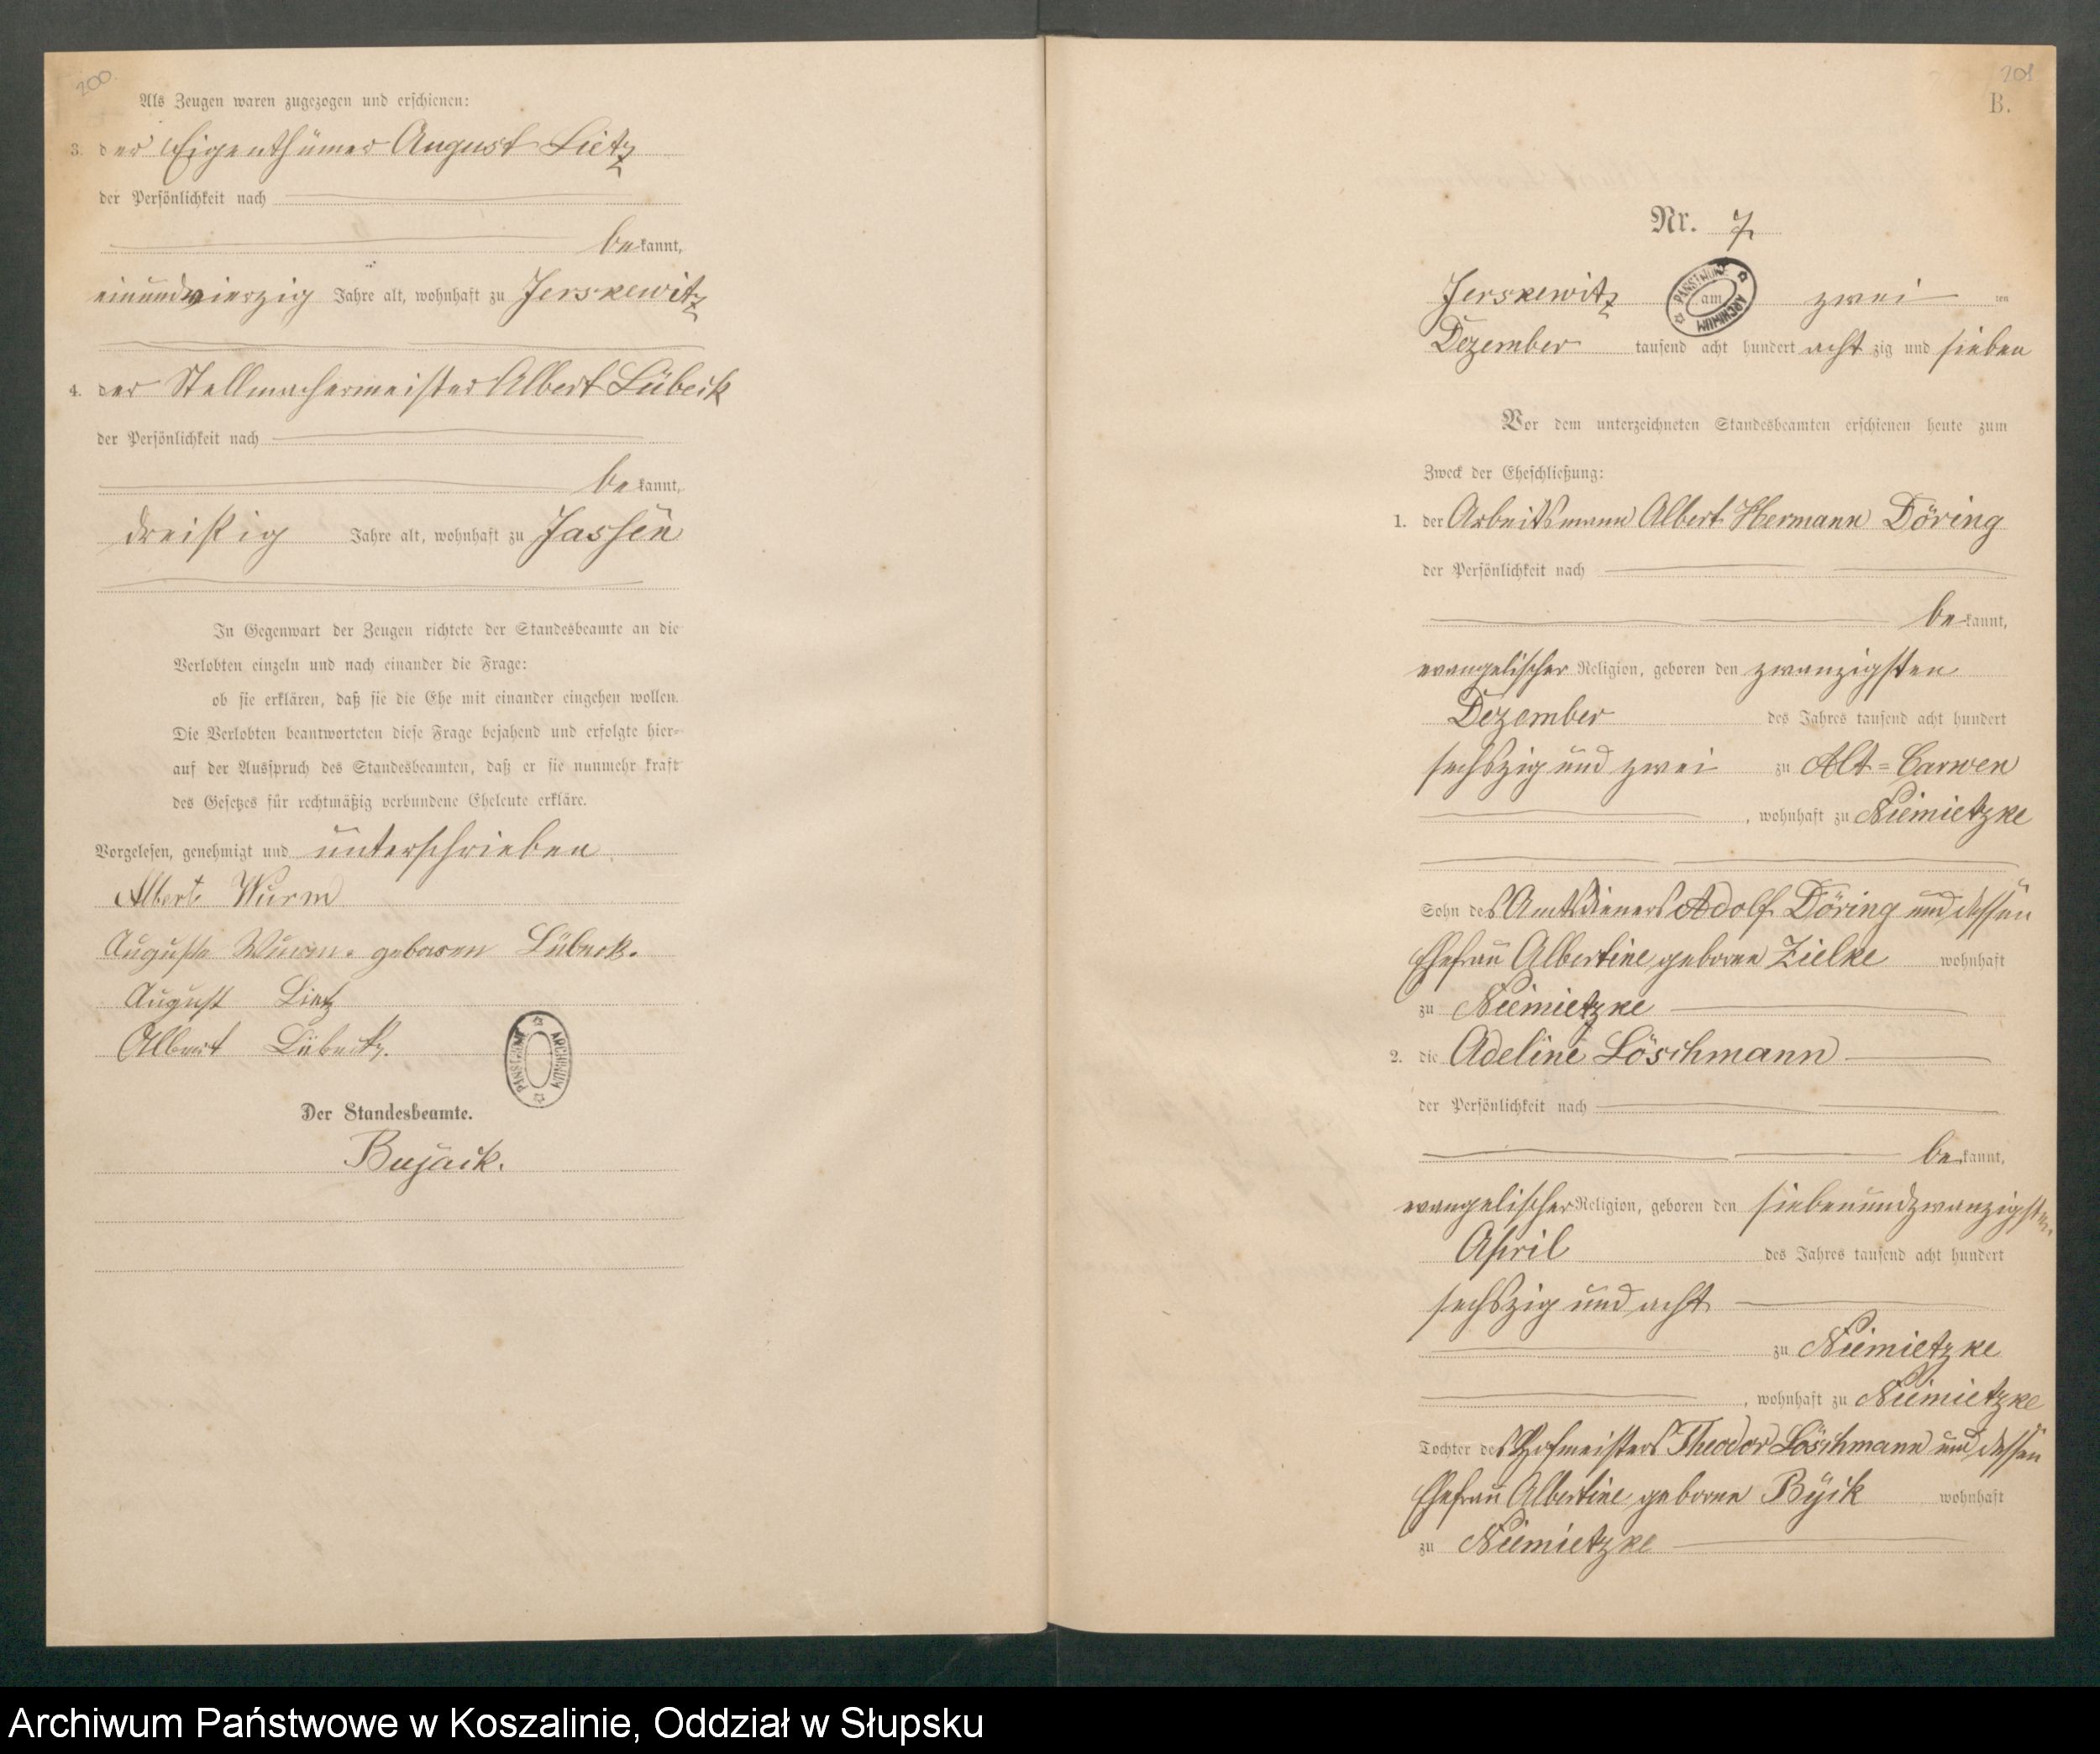 200.
Als Zeugen waren zugezogen und erschienen:
3. der Eigenthümer August Lietz
der Persönlichkeit nach
bekannt,
einundvierzig Jahre alt, wohnhaft zu Jerskewitz
4. der Stellmachermeister Albert Lübeck
der Persönlichkeit nach
bekannt,
dreißig Jahre alt, wohnhaft zu Jassen
In Gegenwart der Zeugen richtete der Standesbeamte an die
Verlobten einzeln und nach einander die Frage:
ob sie erklären, daß sie die Ehe mit einander eingehen wollen.
Die Verlobten beantworteten diese Frage bejahend und erfolgte hier-
auf der Ausspruch des Standesbeamten, daß er sie nunmehr kraft
des Gesetzes für rechtmäßig verbundene Eheleute erkläre.
Vorgelesen, genehmigt und unterschrieben
Albert Wurm
Auguste Wurm geboren Lübeck.
August Lietz
Albert Lübeck.
ARCHIWUM PAŃSTWOWE
Der Standesbeamte.
Bujack.
201
B.
Nr. 7
Jerskewitz am zwei ten
ARCHIWUM PAŃSTWOWE
Dezember tausend acht hundert achtzig und sieben
Vor dem unterzeichneten Standesbeamten erschienen heute zum
Zweck der Eheschließung:
1. der Arbeitsmann Albert Hermann Döring
der Persönlichkeit nach
bekannt,
evangelischer Religion, geboren den zwanzigsten
Dezember des Jahres tausend acht hundert
sechszig und zwei zu Alt-Carwen
, wohnhaft zu Niemietzke
Sohn des Amtsdieners Adolf Döring und dessen
Ehefrau Albertine geborne Zielke wohnhaft
zu Niemietzke
2. die Adeline Löschmann
der Persönlichkeit nach
bekannt,
evangelischer Religion, geboren den siebenundzwanzigsten
April des Jahres tausend acht hundert
sechszig und acht
zu Niemietzke
, wohnhaft zu Niemietzke
Tochter des Hofmeisters Theodor Löschmann und dessen
Ehefrau Albertine geborne wohnhaft
zu Niemietzke
Archiwum Państwowe w Koszalinie, Oddział w Słupsku